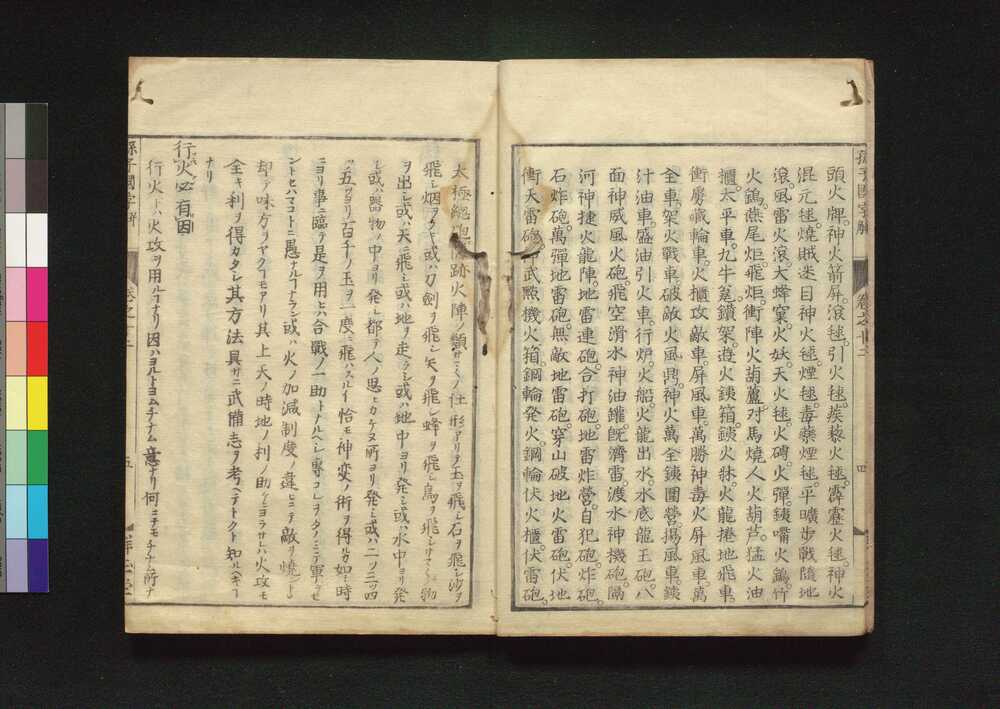 頭火牌。神火箭屏。滾毬。引火毬。蒺藜火毬。霹靂火毬。神火
混元毬。燒賊迷目神火毬。煙毬。毒藥煙毬。平曠步戰隨地
滾。風雷火滾。大蜂窠。火妖。天火毬。火磚。火彈。鉄嘴火鷂。竹
火鷂。燕尾炬。飛炬。衝陣火葫蘆。对馬燒人火葫芦。猛火油
櫃。太平車。九牛甕。鑚架。遊火鉄箱。鉄火牀。火龍捲地飛車。
衝虜藏輪車。火櫃攻敵車。屏風車。萬勝神毒火屏風車。萬
全車。架火戰車。破敵火風鼎。神火萬全鉄圍營。揚風車。鉄
汁油車。盛油引火車。行炉。火船。火龍出水。水底龍王砲。八
面神威風火砲。飛空滑水神油罐。既濟雷。渡水神機砲。隔
河神捷火龍陣。地雷連砲。合打砲。地雷炸營。自犯砲。炸砲。
石炸砲。萬彈地雷砲。無敵地雷砲。穿山破地火雷砲。伏地
衝天雷砲。神武熕機火箱。鋼輪発火。鋼輪伏火櫃。伏雷砲。
太極總砲。跡火陣ノ類サマ〱ノ仕形アリテ玉ヲ飛シ石ヲ飛シ沙ヲ
飛シ烟ヲ或ハ刀劍ヲ飛シ矢ヲ飛シ蜂ヲ飛シ鳥ヲ飛シサマ〱物
ヲ出シ或ハ天ニ飛シ或ハ地ヲ走ラシ或ハ地中ヨリ発シ或ハ水中ヨリ発
シ或ハ器物ノ中ヨリ発シ都テ人ノ思ヒカケヌ所ヨリ発シ或ハ二ツ三ツ四
ツ五ツヨリ百千ノ玉ヲ一度ニ飛ハスルコト恰モ神変ノ術ヲ得ルカ如シ時
ニヨリ事ニ臨テ是ヲ用ヒハ合戰ノ一助トナルヘシ專コレヲタノミテ軍セ
ントセハマコトニ愚ナルコトナラン或ハ火ノ加減制度ノ違ヒニテ敵ヲ燒
却テ味方ヲヤクコモアリ其上天ノ時地ノ利ノ助ケニヨラサレハ火攻モ
全キ利ヲ得カタシ其方法具サニ武備志ヲ考ヘテトクト知ルヘキコ
ナリ
行火必有因
行火トハ火攻ヲ用ルコナリ因ハヨルトヨムチナム意ナリ何ニチモチナム所ナ
孫子國字解 卷之十二 五
孫子國字解 卷之十二 四